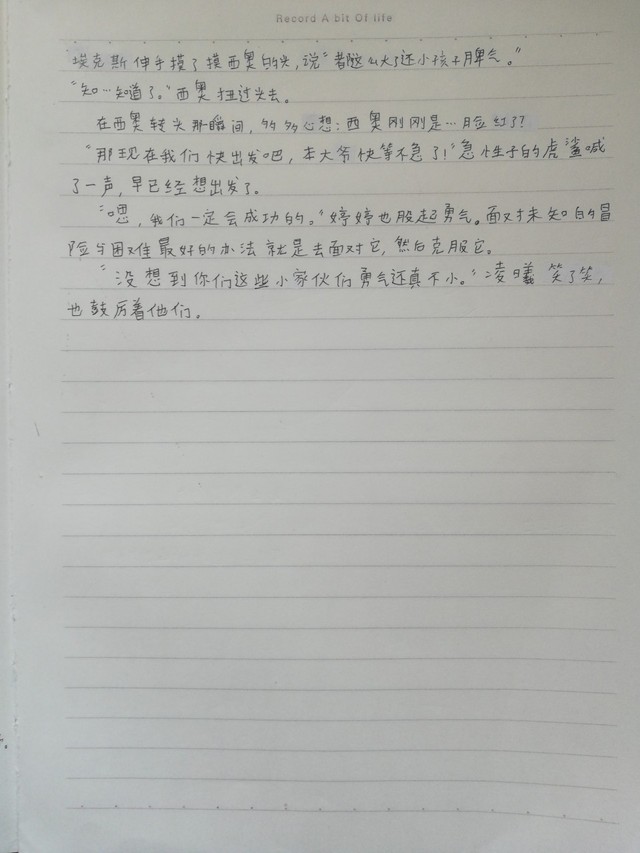 Record A bit Of life
埃克斯伸手摸了摸西奥的头,说“都这么大了还小孩子脾气。”
“知…知道了。”西奥扭过头去。
在西奥转头那瞬间,多多心想:西奥刚刚是…脸红了?
“那现在我们快出发吧,本大爷快等不急了!”急性子的虎鲨喊
了一声,早已经想出发了。
“嗯,我们一定会成功的。”婷婷也股起勇气。面对未知的冒
险与困难最好的办法就是去面对它,然后克服它。
“没想到你们这些小家伙们勇气还真不小。”凌曦笑了笑,
也鼓厉着他们。